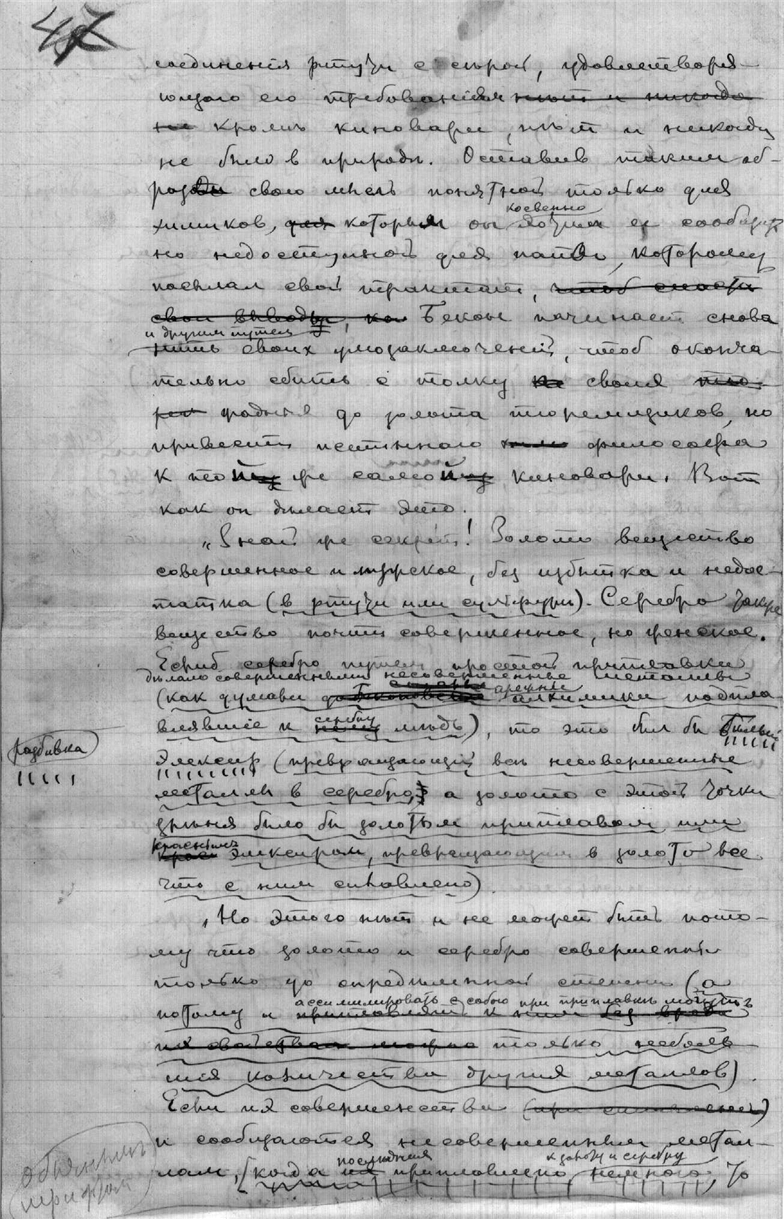 47
соединенія ртути с сѣрой, удовлетворя-
ющаго его требованіям
кромѣ киновари, нѣт и никогда
не было в природѣ. Оставив таким об-
разом свою мысль понятной только для
химиков, которым он косвенно ее сообщает
но недоступной для папы, которому
посылал свой трактат,
Бекон начинает снова
и другим путем
нить своих умозаключеній, чтоб оконча-
тельно сбить с толку своих
жадных до золота тюремщиков, но
привести истиннаго философа
к той же самой киновари. Вот
как он дѣлает это.
„Знай же секрет! Золото вещество
совершенное и мужское, без избытка и недос-
татка (в ртути или сульфуре). Серебро также
вещество почти совершенное, но женское.
Еслиб серебро путем простой приплавки
дѣлало совершенными несовершенные металлы
(как думали прежніе алхимики
к серебру мѣдь), то это был бы бѣлый
Разбивка
элексир (превращающій всѣ несовершенные
металлы в серебро, а золото с этой точки
зрѣнія было бы золотым приплавом или
красным элексиром, превращающим в золото все
что с ним сплавлено).
„Но этого нѣт и не может быть пото-
му что золото и серебро совершенны
только до опредѣленной степени (а
потому и ассимилировать с собою при приплавкѣ могут
только небольш-
ія количества других металлов).
Если их совершенства
и сообщаются несовершенным метал-
лам, (когда последних приплавлено к золоту и серебру немного, то
обычным
шрифтом